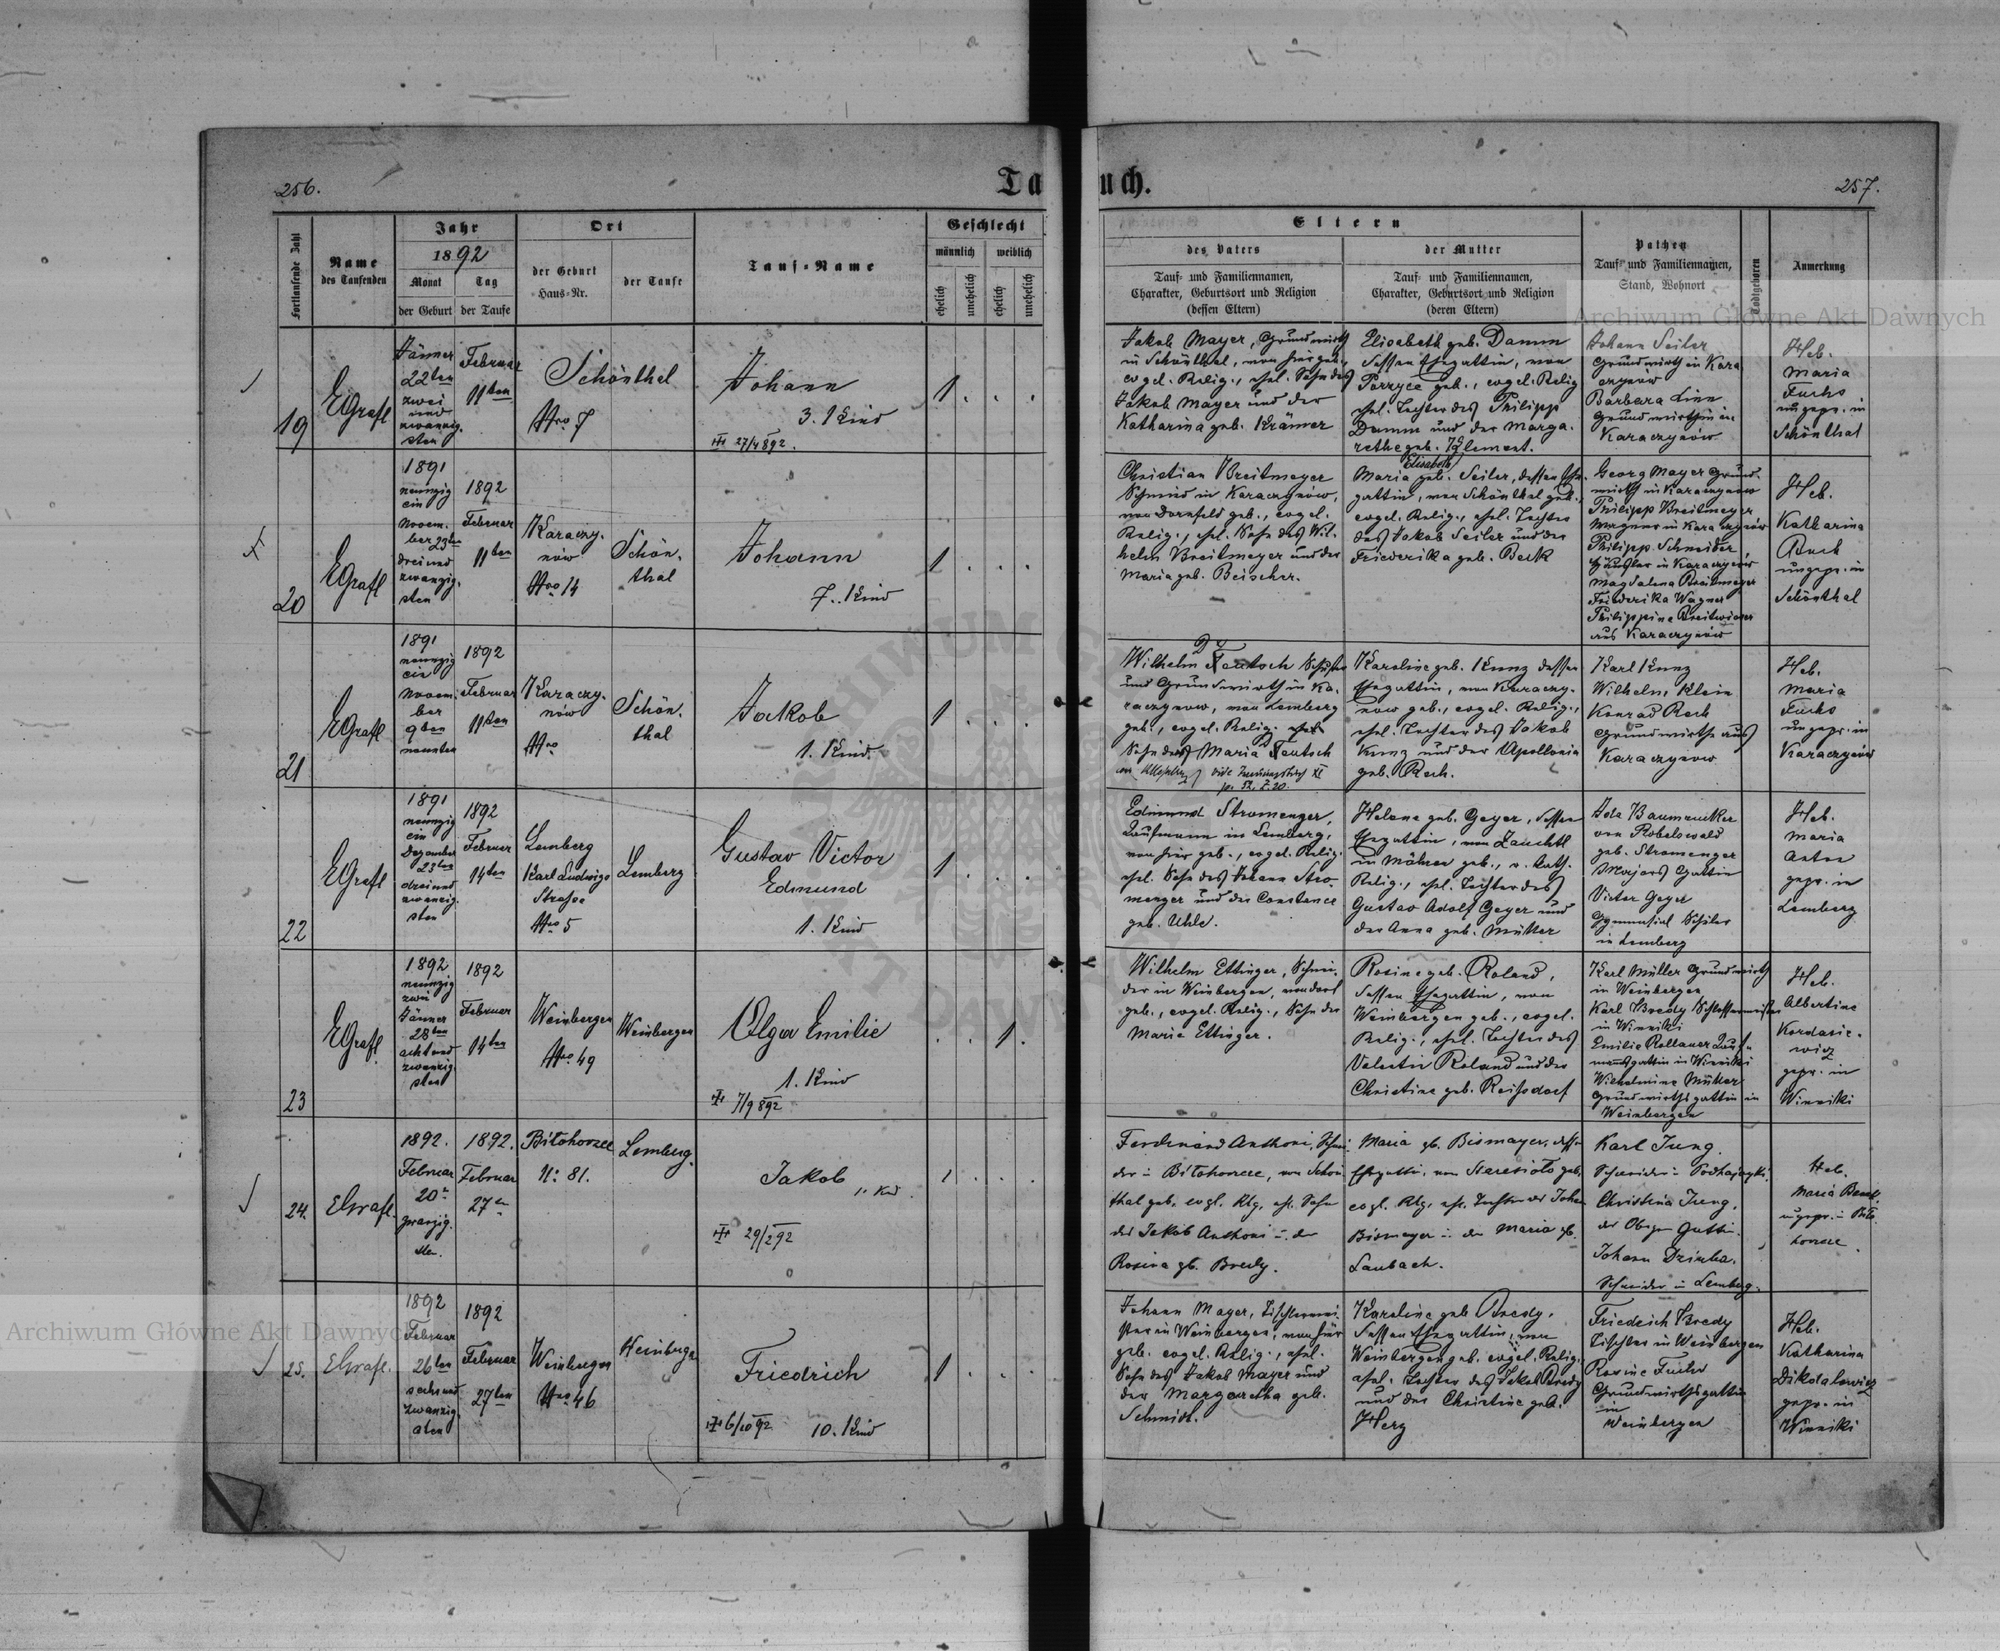 256.
Taufbuch.
257.
Fortlaufende Zahl
Name
des Taufenden
Jahr
1892
Monat
Tag
der Geburt
der Taufe
Ort
der Geburt
Haus-Nr.
der Taufe
Tauf-Name
Geschlecht
männlich
weiblich
ehelich
unehelich
ehelich
unehelich
Eltern
des Vaters
Tauf- und Familiennamen,
Charakter, Geburtsort und Religion
(dessen Eltern)
der Mutter
Tauf- und Familiennamen,
Charakter, Geburtsort und Religion
(deren Eltern)
Pathen
Tauf- und Familiennamen,
Stand, Wohnort
Todtgeboren
Anmerkung
19
EGrafl
Jänner
22ten
zwei
und
zwanzig.
sten
Februar
11ten
Schönthal
Nro 7
Johann
3. Kind
27/4 892.
1 . . .
Jakob Mayer, Grundwirth
in Schönthal, von hier geb.,
evgel. Relig., ehel. Sohn des
Jakob Mayer und der
Katharina geb. Krämer
Elisabeth geb. Damm
dessen Ehegattin, von
Porzyce geb., evgel. Relig
ehel. Tochter des Philipp
Damm und der Marga-
rethe geb. Klement.
Johann Seiler
Grundwirth in Kara
czynow
Barbara Linn
Grundwirthin in
Karaczynów
Heb.
Maria
Fuchs
ungepr. in
Schönthal
20
EGrafl
1891
neunzig
ein
Novem-
ber 23ten
drei und
zwanzig-
sten
1892
Februar
11ten
Karaczy-
nów
Nro 14
Schön-
thal
Johann
7. Kind
1 . . .
Christian Breitmeyer
Schmied in Karaczynów,
von Dornfeld geb., evgel.
Relig., ehel. Sohn des Wil-
helm Breitmeyer und der
Maria geb. Beischer.
Elisabeth
Maria geb. Seiler, dessen Ehe-
gattin, von Schönthal geb.,
evgel. Relig., ehel. Tochter
des Jakob Seiler und der
Friederika geb. Beck
Georg Mayer Grund-
wirth in Karaczynow
Philipp Breitmeyer
Wagner in Karaczynów
Philipp Schneider,
in Karaczynow
Magdalena Breitmeyer
Friederika Wagner
Philippine Breitwieser
aus Karaczynów
Heb.
Katharina
ungepr. in
Schönthal
21
EGrafl
1891
neunzig
ein
Novem-
ber
9ten
neunten
1892
Februar
11ten
Karaczy-
nów
Nro
Schön-
thal
Jakob
1. Kind.
1 . . .
Wilhelm Teutsch Schuster
und Grundwirth in Ka-
raczynow, von Lemberg
geb., evgel. Relig. ehel.
Sohn der Maria Teutsch
Karoline geb. Kunz dessen
Ehegattin, von Karaczy-
now geb., evgel. Relig.,
ehel. Tochter des Jakob
Kunz und der Apollonia
geb. Rech.
Karl Kunz
Wilhelm Klein
Konrad Rech
Grundwirthe aus
Karaczynow
Heb.
Maria
Fuchs
ungepr. in
Karaczynów
22
EGrafl
1891
neunzig
ein
Dezember
23ten
drei und
zwanzig-
sten
1892
Februar
14ten
Lemberg
Karl Ludwigs
Strasse
Nro 5
Lemberg
Gustav Victor
Edmund
1. Kind
1 . . .
Edmund Stromenger,
Kaufmann in Lemberg,
von hier geb., evgel. Relig.
ehel. Sohn des Johann Stro-
menger und der Constance
geb. Uhle.
Helene geb. Geyer, dessen
Ehegattin, von Zauchtl
in Mähren geb., r. kath.
Relig., ehel. Tochter des
Gustav Adolf Geyer und
der Anna geb. Müller
Ida Baumrucker
von Robelswald
geb. Stromenger
Majors Gattin
Victor Geyer
Gymnasial Schüler
in Lemberg
Heb.
Maria
gepr. in
Lemberg
23
EGrafl
1892
neunzig
zwei
Jänner
28ten
acht und
zwanzig-
sten
1892
Februar
14ten
Weinbergen
Nro 49
Weinbergen
Olga Emilie
1. Kind
7/9 892
. . 1 .
Wilhelm Ettinger, Schnei-
der in Weinbergen, von dort
geb., evgel. Relig., Sohn der
Marie Ettinger.
Rosine geb. Roland,
dessen Ehegattin, von
Weinbergen geb., evgel.
Relig., ehel. Tochter des
Valentin Roland und der
Christine geb. Reissdorf
Karl Müller Grundwirth
in Weinbergen
Karl Bredy Schlossermeister
in Winniki
Emilie Rollauer Kauf-
mannsgattin in Winniki
Wilhelmine Müller
Grundwirthsgattin in
Weinbergen
Heb.
Albertine
Kordasie-
wicz
gepr. in
Winniki
24.
EGrafl.
1892.
Februar
20n
zwanzig-
sten.
1892.
Februar
27ten
Biłohorzce
N: 81.
Lemberg.
Jakob
1. Kind.
29/2 92
1 . . .
Ferdinand Anthoni, Schnei-
der in Biłohorzce, von Schön-
thal geb. evgl. Rlg, ehl. Sohn
des Jakob Anthoni u. der
Rosina gb. Bredy.
Maria gb. Bismayer, dessen
Ehegattin, von Staresioło geb.
evgl. Rlg, ehl. Tochter des Johann
Bismayer u. der Maria gb.
Laubach.
Karl Jung.
Schneider in
Christina Jung,
des Obigen Gattin.
Johann Dzimba,
Schneider in Lemberg.
Heb.
Maria
ungepr. in Biło-
horzce.
25.
EGrafl.
1892
Februar
26ten
sechs und
zwanzig-
sten
1892
Februar
27ten
Weinbergen
Nro 46
Weinbergen
Friedrich
10. Kind
6/10 92
1 . . .
Johann Mayer, Tischlermei-
ster in Weinbergen, von hier
geb. evgel. Relig., ehel.
Sohn des Jakob Mayer und
der Margaretha geb.
Schmidt.
Karoline geb Bredy,
dessen Ehegattin, von
Weinbergen geb. evgel. Relig.
ehel. Tochter des Jakob Bredy
und der Christine geb.
Herz
Friedrich Bredy
Tischler in Weinbergen
Rosine
Grundwirthsgattin
in
Weinbergen
Heb.
Katharina
Dikalowicz
gepr. in
Winniki
Archiwum Główne Akt Dawnych
Archiwum Główne Akt Dawnych